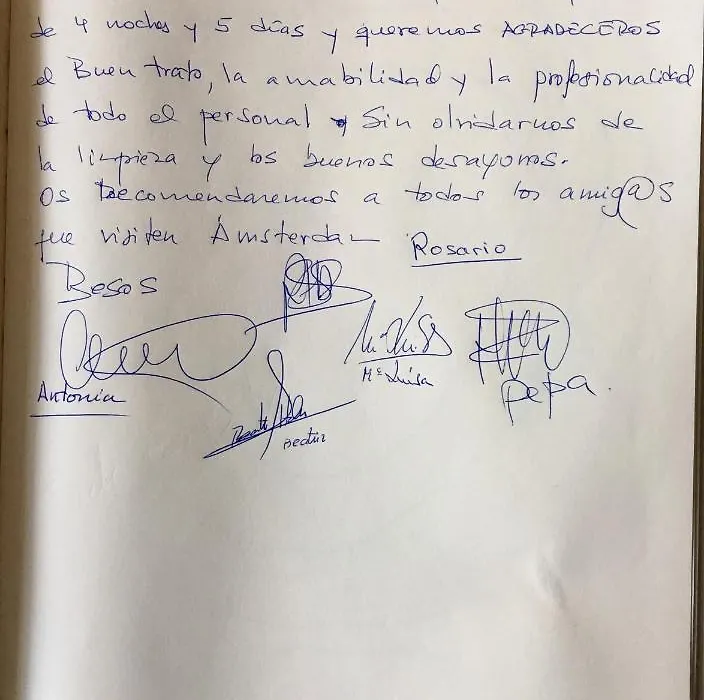 de 4 noches y 5 días y queremos AGRADECEROS
el Buen trato, la amabilidad y la profesionalidad
de todo el personal y Sin olvidarnos de
la limpieza y los buenos desayunos.
Os Recomendaremos a todos los amig@s
que visiten Ámsterdam
Rosario
Besos
Antonia
Mª Luisa
Beatriz
pepa.